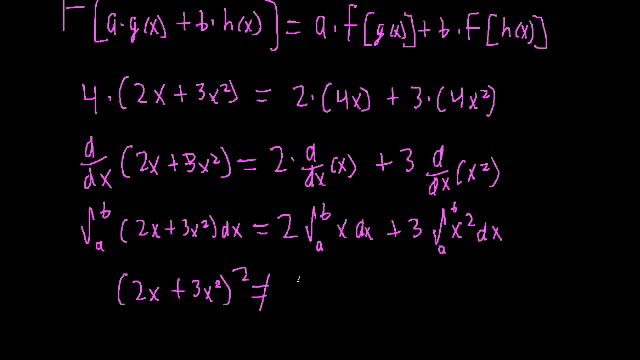 F[a·g(x) + b·h(x)] = a·f[g(x)] + b·F[h(x)]
4·(2x + 3x²) = 2·(4x) + 3·(4x²)
d/dx (2x+3x²) = 2·d/dx(x) + 3 d/dx(x²)
∫ₐᵇ (2x+3x²)dx = 2∫ₐᵇ x dx + 3∫ₐᵇ x² dx
(2x + 3x²)² ≠